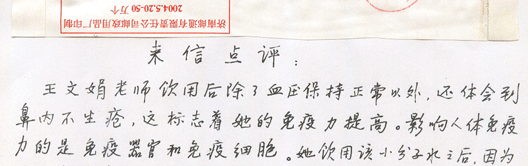 济南邮通有限责任公司邮政用品厂印制
2004.5.20-50 万个
来信点评：
王文娟老师饮用后除了血压保持正常以外，还体会到
鼻内不生疮，这标志着她的免疫力提高。影响人体免疫
力的是免疫器官和免疫细胞。她饮用该小分子水之后，因为